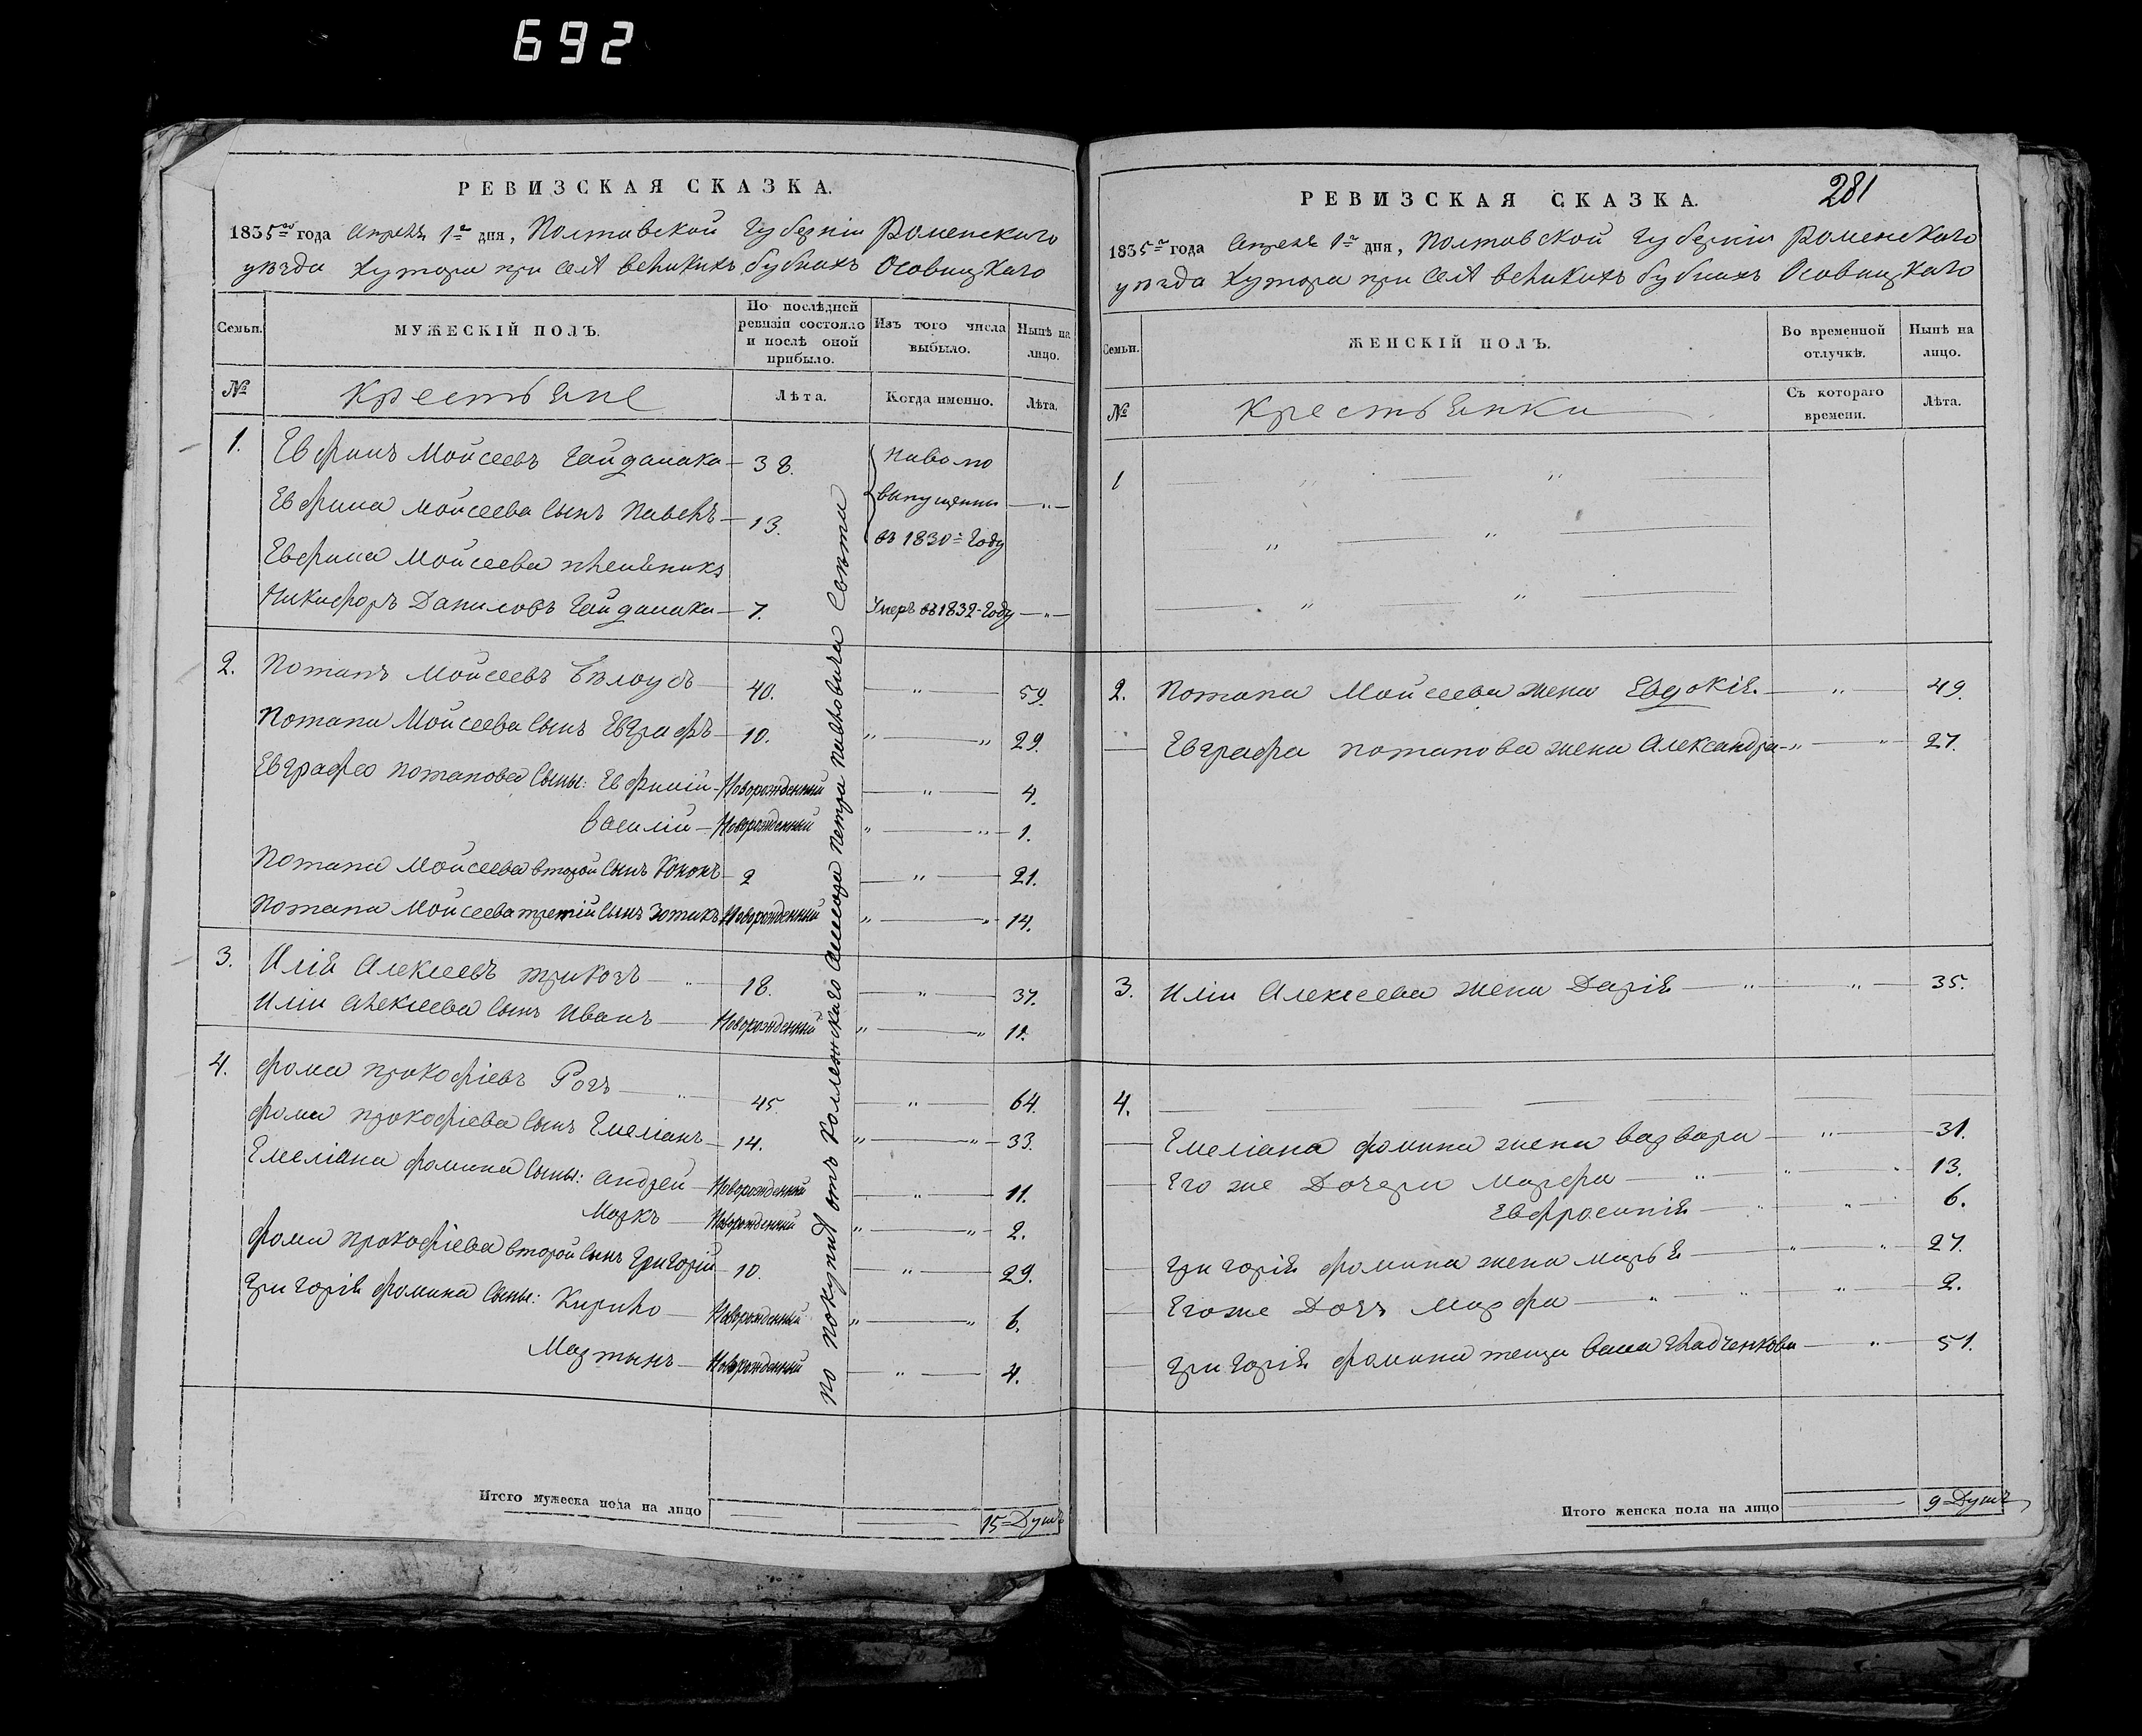 692
РЕВИЗСКАЯ СКАЗКА.
1835го года Апреля 1го дня, Полтавской Губернiи Роменскаго
уѣзда Хутора при селѣ великихъ бубнахъ Осовицкаго
Семьи.
МУЖЕСКIЙ ПОЛЪ.
По послѣдней ревизiи состояло и послѣ оной прибыло.
Изъ того числа выбыло.
Нынѣ на лицо.
№
Крестьяне
Лѣта.
Когда именно.
Лѣта.
1. Ефимъ Мойсеевъ Гайдамака 38.
на волю
Ефима Мойсеева Сынъ Павелъ 13.
выпущенны
въ 1830 Году
Ефима Мойсеева племянникъ
Никифоръ Даниловъ Гайдамака 7. Умеръ въ 1832 Году
2. Потапъ Мойсеевъ Бѣлоусъ 40. 59.
Потапа Мойсеева Сынъ Евграфъ 10. 29.
Евграфа Потапова Сыны: Ефимiй Новорожденный 4.
Василiй Новорожденный 1.
Потапа Мойсеева второй Сынъ Кононъ 2 21.
Потапа Мойсеева третiй Сынъ Зотикъ Новорожденный 14.
3. Илiя Алексеевъ Трикозъ 18. 37.
Илiи Алексеева Сынъ Иванъ Новорожденный 11.
4. Фома Прокофiевъ Рогъ 45. 64.
Фомы Прокофiева Сынъ Емелiанъ 14. 33.
Емелiана Фомина Сыны: Андрей Новорожденный 11.
Марко Новорожденный 2.
Фомы Прокофiева второй Сынъ Григорiй 10. 29.
Григорiя Фомина Сыны: Кирило Новорожденный 6.
Мартынъ Новорожденный 4.
по покупкѣ отъ Коллежскаго Павловича
Итого мужеска пола на лицо 15 Душъ
281
РЕВИЗСКАЯ СКАЗКА.
1835го года Апреля 1го дня, Полтавской Губернiи Роменскаго
уѣзда Хутора при селѣ великихъ бубнахъ Осовицкаго
Семьи.
ЖЕНСКIЙ ПОЛЪ.
Во временной отлучкѣ.
Нынѣ на лицо.
№
Крестьянки
Съ котораго времени.
Лѣта.
1
2. Потапа Мойсеева жена Евдокiя 49.
Евграфа Потапова жена Александра 27.
3. Илiи Алексеева жена Дарiя 35.
4.
Емелiана Фомина жена Варвара 31.
Его же Дочери Марфа 13.
Евфросинiя 6.
Григорiя Фомина жена Марья 27.
Его же Дочь Марфа 2.
Григорiя Фомина теща 51.
Итого женска пола на лицо 9 Душъ